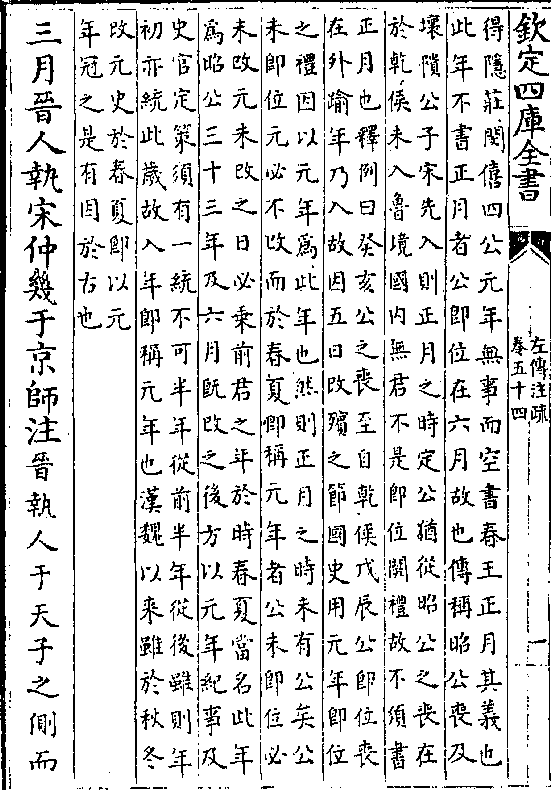 欽定四庫全書
左傳注疏
卷五十四
一
得隱莊閔僖四公元年無事而空書春王正月其義也
此年不書正月者公即位在六月故也傳稱昭公喪及
壞隤公子宋先入則正月之時定公猶從昭公之喪在
於乾侯未入魯境國內無君不是即位闕禮故不須書
正月也釋例曰癸亥公之喪至自乾侯戊辰公即位喪
在外踰年乃入故因五日改殯之節國史用元年即位
之禮因以元年為此年也然則正月之時未有公矣公
未即位元必不改而於春夏即稱元年者公未即位必
未改元未改之日必乗前君之年於時春夏當名此年
為昭公三十三年及六月既改之後方以元年紀事及
史官定策須有一統不可半年從前半年從後雖則年
初亦統此歲故入年即稱元年也漢魏以来雖於秋冬
改元史於春夏即以元
年冠之是有因於古也
三月晉人執宋仲幾于京師注晉執人于天子之側而